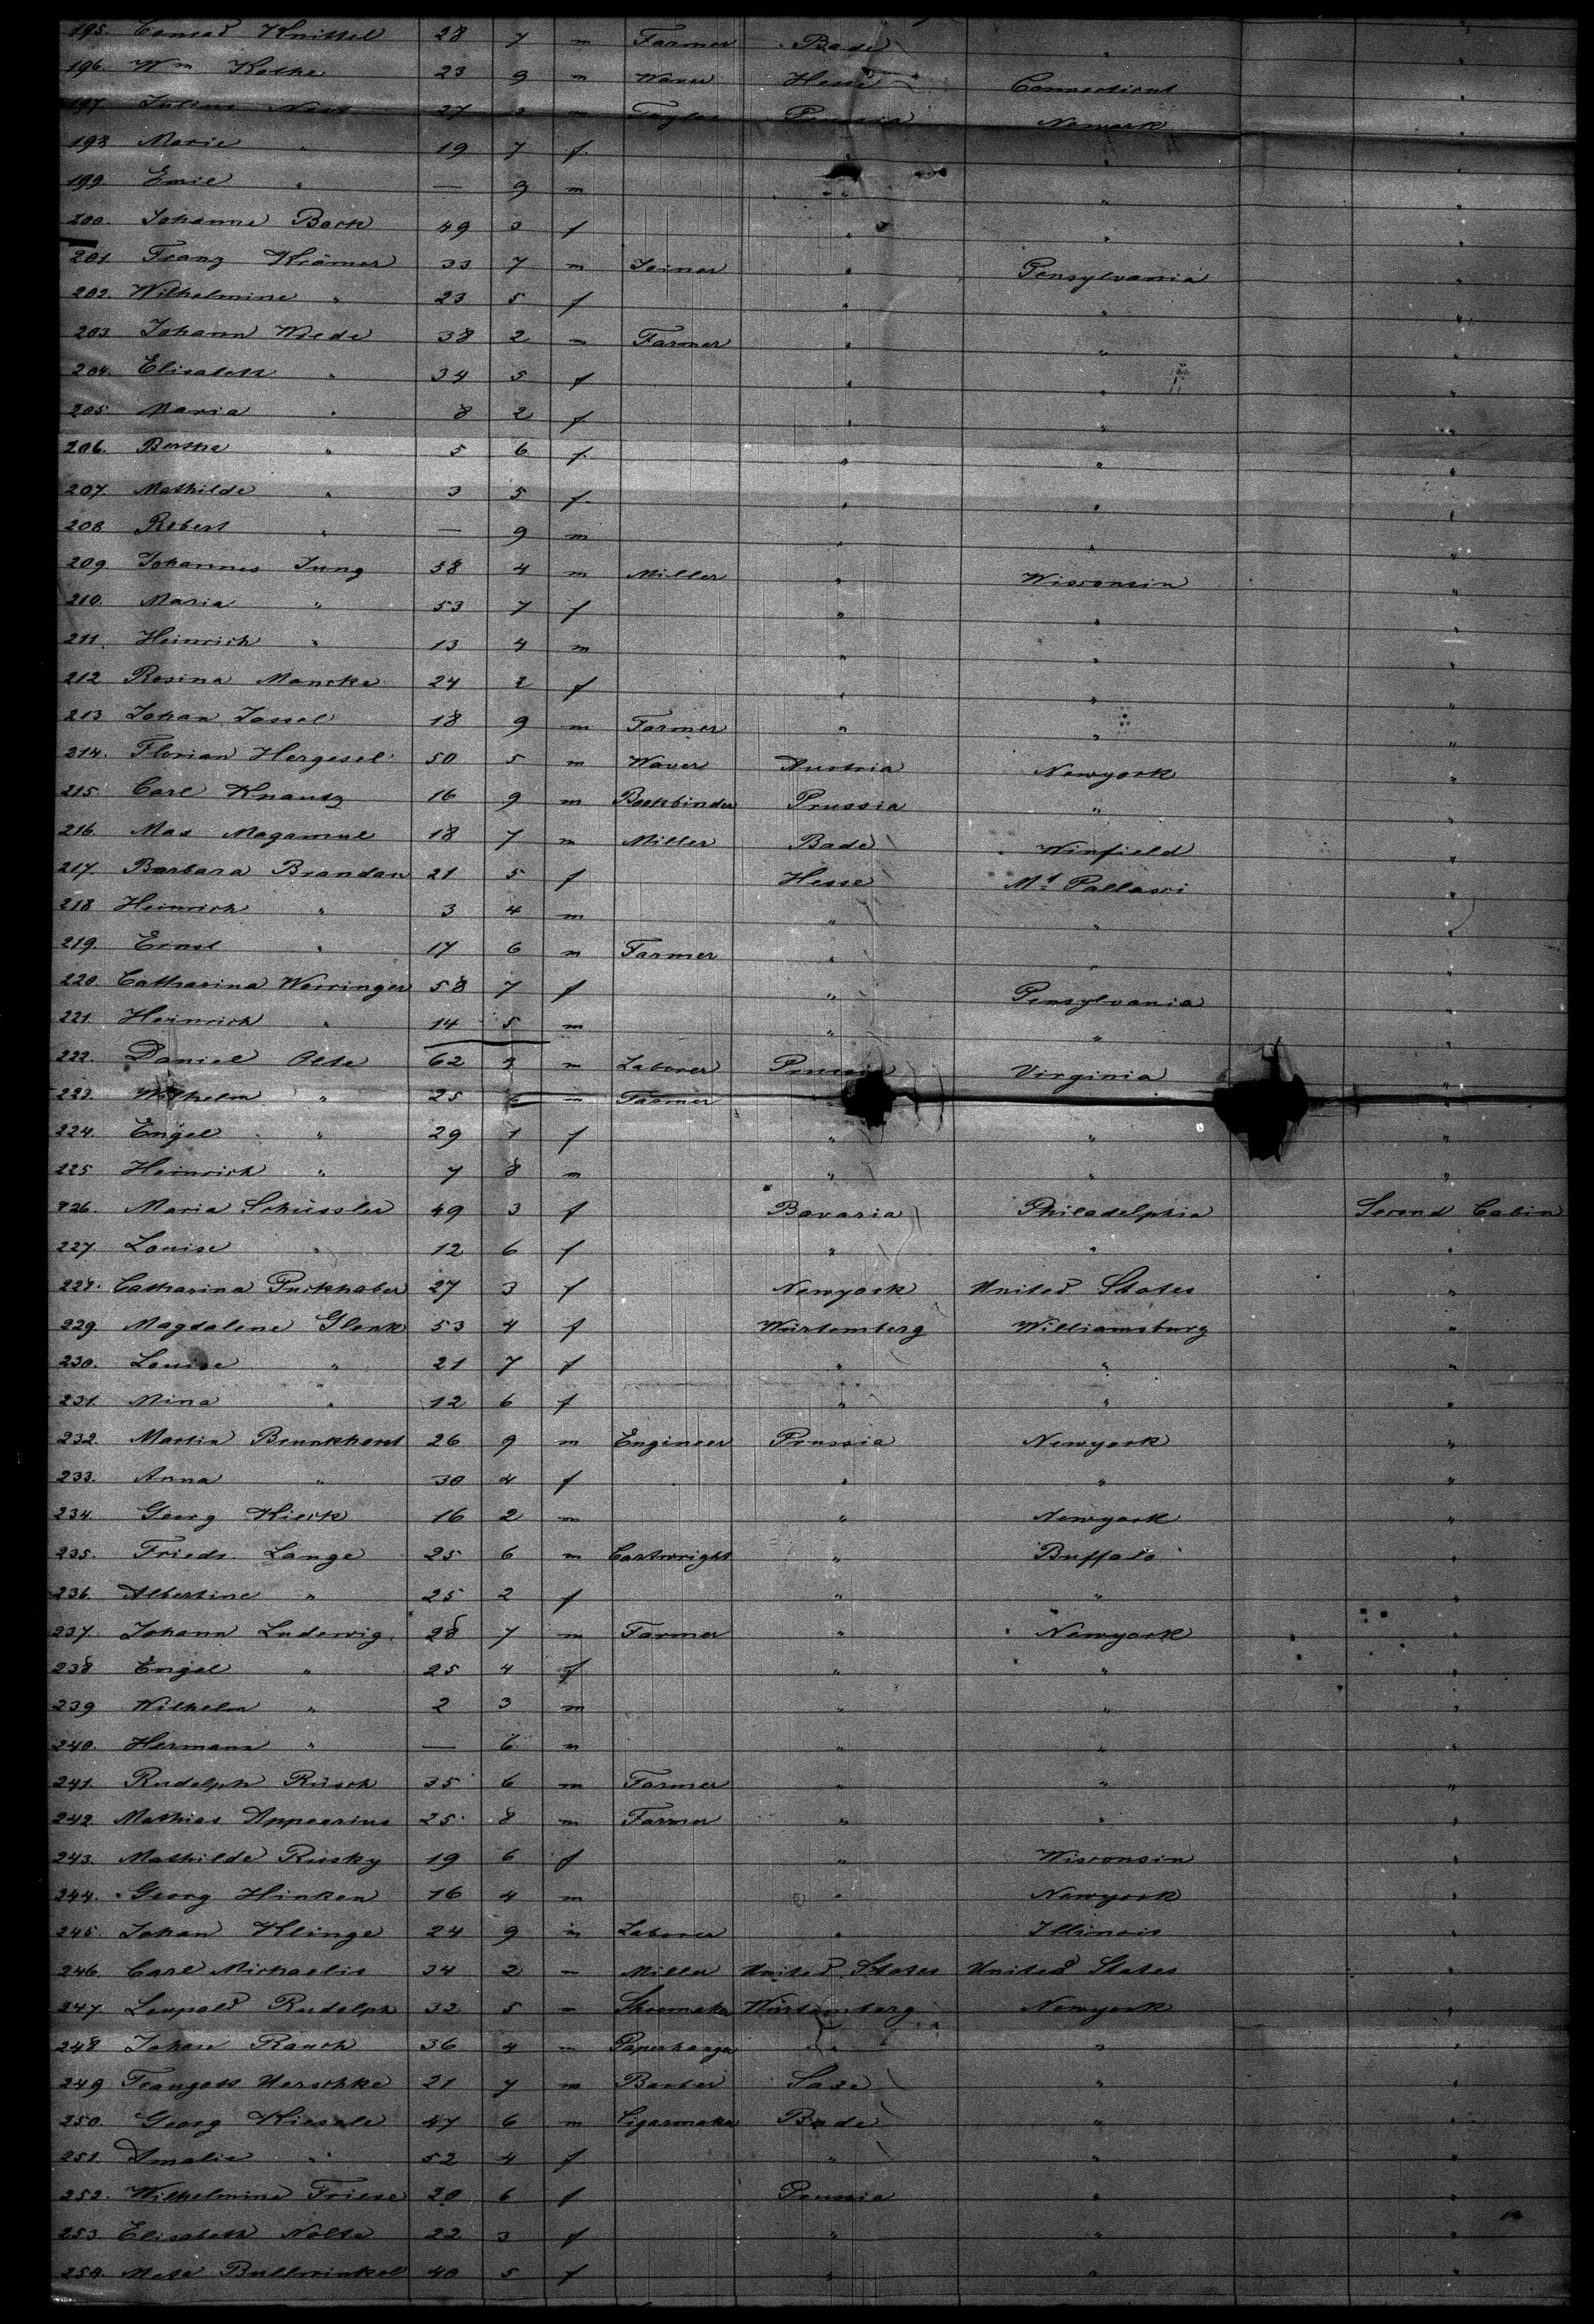 195. Conrad Knittel 28 7 m Farmer Bade "
196. Wm Kothe 23 9 m Waver Hesse Connecticut "
197. Julius Nest 27 3 m Taylor Prussia Newark "
198 Marie " 19 7 f " " "
199. Emil " — 9 m " " "
200. Johanne Bock 49 3 f " " "
201. Franz Krämer 33 7 m Joiner " Pensylvania "
202. Wilhelmine " 23 5 f " " "
203 Johann Wiede 38 2 m Farmer " " "
204. Elisabeth " 34 5 f " " "
205. Maria " 8 2 f " " "
206. Bertha " 5 6 f " " "
207. Mathilde " 3 5 f " " "
208 Robert " — 9 m " " "
209. Johannes Jung 58 4 m Miller " Wisconsin "
210. Maria " 53 7 f " " "
211. Heinrich " 13 4 m " " "
212 Rosina Mancke 24 2 f " " "
213 Johan Jassel 18 9 m Farmer " " "
214. Florian Hergesel 50 5 m Waver Austria Newyork "
215 Carl Knautz 16 9 m Bookbinder Prussia " "
216. Max Magamul 18 7 m Miller Bade Winfield "
217. Barbara Brandau 21 5 f Hesse Mt Pallawi "
218 Heinrich " 3 4 m " " "
219. Ernst " 17 6 m Farmer " " "
220. Catharina Worringer 58 7 f " Pensylvania "
221. Heinrich " 14 5 m " " "
222. Daniel Olte 62 3 m Laborer Prussia Virginia "
223. Wilhelm " 25 6 m Farmer " "
224. Engel " 29 1 f " " "
225 Heinrich " 7 8 m " " "
226. Maria Schüssler 49 3 f Bavaria Philadelphia Second Cabin
227. Louise " 12 6 f " " "
228. Catharina Purkhaber 27 3 f Newyork United States "
229. Magdalene Glenk 53 4 f Würtemberg Williamsburg "
230. Louise " 21 7 f " " "
231. Mina " 12 6 f " " "
232. Martin Brunkhorst 26 9 m Engineer Prussia Newyork "
233. Anna " 30 4 f " " "
234. Georg Hierk 16 2 m " Newyork "
235. Friedr. Lange 25 6 m Cartwright " Buffalo "
236. Albertine " 25 2 f " " "
237. Johann Ludewig 28 7 m Farmer " Newyork "
238 Engel " 25 4 f " " "
239 Wilhelm " 2 3 m " " "
240. Hermann " — 6 m " " "
241. Rudolph Rüsch 35 6 m Farmer " " "
242. Mathias Appearius 25 8 m Farmer " " "
243. Mathilde Rusky 19 6 f " Wisconsin "
244. Georg Hinken 16 4 m " Newyork "
245. Johan Klinge 24 9 m Laborer " Illinois "
246. Carl Michaelis 34 2 m Miller United States United States "
247. Leupold Rudolph 32 5 m Shoemaker Würtemberg Newyork "
248 Johan Rauch 36 4 m Paperhanger " " "
249 Traugott Uerschke 21 7 m Barber Saxe " "
250. Georg Kiesele 47 6 m Cigarmaker Bade " "
251. Amalie " 52 4 f " " "
252. Wilhelmine Friese 20 6 f Prussia " "
253. Elisabeth Nolte 22 3 f " " "
254. Meta Bullwinkel 40 5 f " " "